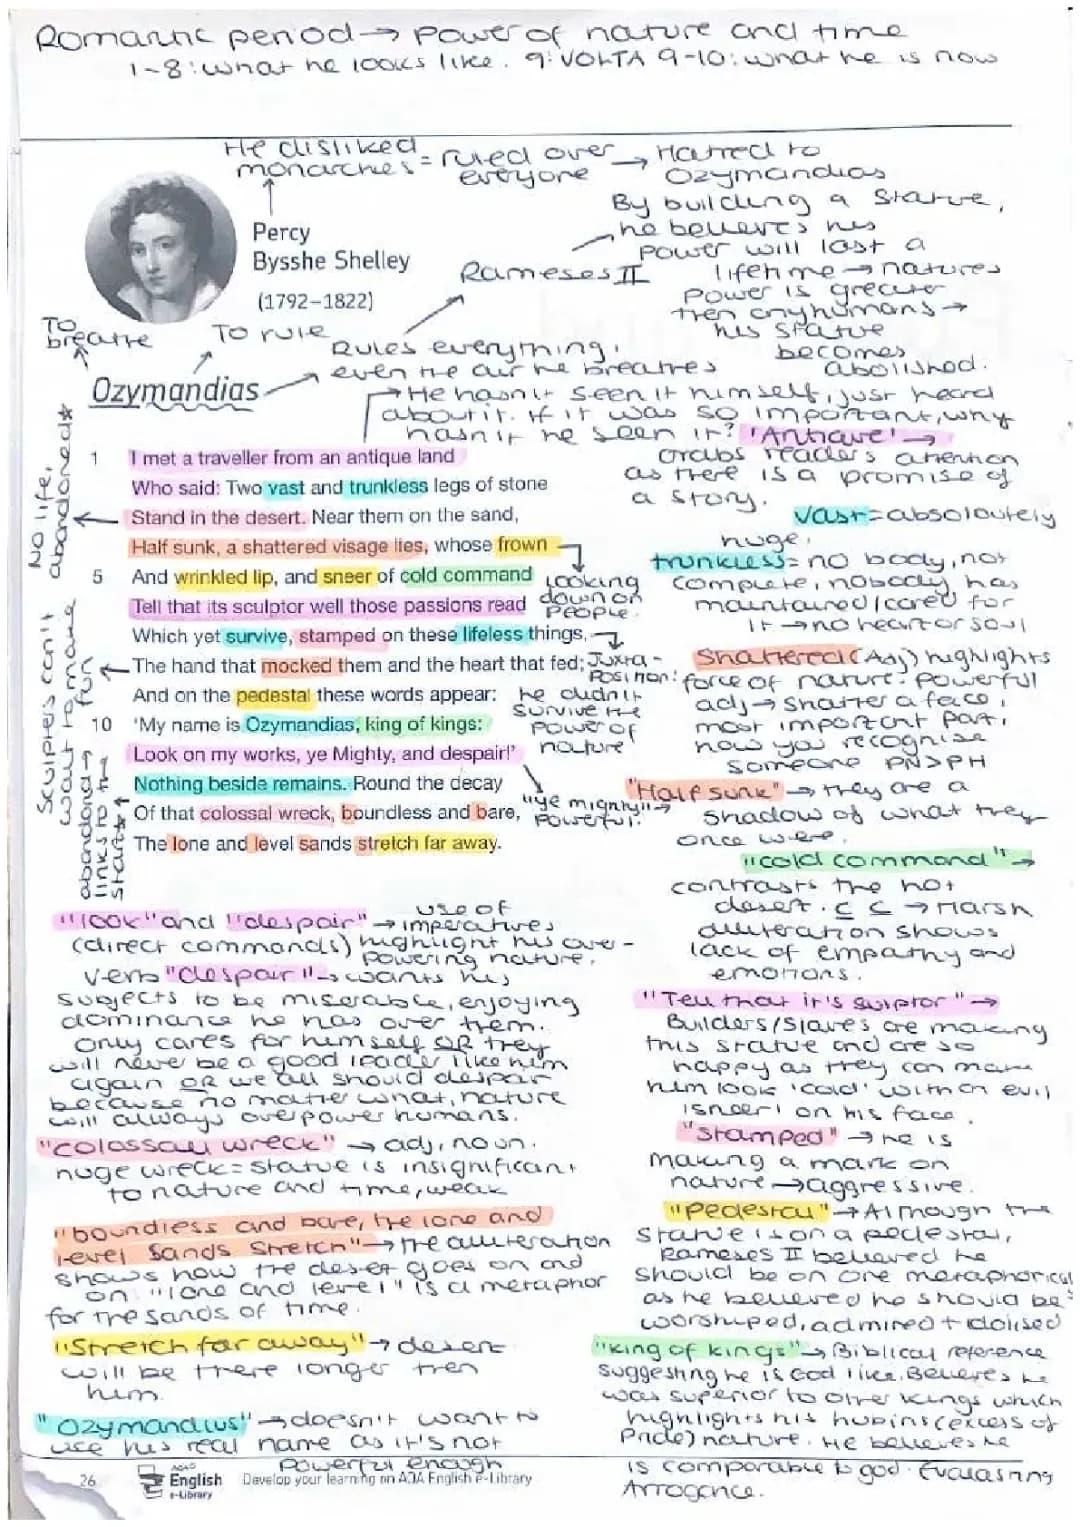 Romantic period → power of nature and time
1-8: what he looks like. 9: VOLTA 9-10: what he is now
He disliked
monarchies = ruled over
everyone
→ Hatred to
Ozymandias
By building a statue,
he believes his
power will last a
lifetime → natures
power is greater
then any humans →
his statue
becomes
abolished.
Percy
Bysshe Shelley
(1792–1822)
Rameses II
To
breathe
To rule
Rules everything,
even the air he breathes
Ozymandias
→ He hasn't seen it himself, just heard
about it. If it was so important, why
hasn't he seen it? 'Antique' →
Grabs readers attention
as there is a promise of
a story.
1 I met a traveller from an antique land
Who said: Two vast and trunkless legs of stone
Stand in the desert. Near them on the sand,
Half sunk, a shattered visage lies, whose frown
5 And wrinkled lip, and sneer of cold command
Tell that its sculptor well those passions read
Which yet survive, stamped on these lifeless things,
The hand that mocked them and the heart that fed;
And on the pedestal these words appear:
10 'My name is Ozymandias, king of kings:
Look on my works, ye Mighty, and despair!'
Nothing beside remains. Round the decay
Of that colossal wreck, boundless and bare,
The lone and level sands stretch far away.
No life,
abandoned*
Sculpters can't
want to make
fun
abandond →
links to the
start*
Looking
down on
people.
Juxta-
position:
he didn't
survive the
power of
nature
"ye mighty" →
powerful.
Vast = absoloutely
huge.
trunkless = no body, not
complete, nobody has
maintained/cared for
it → no heart or soul
Shattered (Adj) highlights
force of nature. powerful
adj → shatter a face,
most important part,
how you recognise
someone PN>PH
"Half sunk" → they are a
shadow of what they
once were.
"cold command" →
contrasts the hot
desert. C C → Harsh
alliteration shows
lack of empathy and
emotions.
"Tell that it's sulptor" →
Builders/Slaves are making
this statue and are so
happy as they can make
him look 'cold' with an evil
'sneer' on his face.
"Stamped" → he is
making a mark on
nature → aggressive.
"Pedestal" → Although the
statue is on a pedestal,
Rameses II believed he
should be on one metaphorical
as he believed he should be
worshiped, admired + idolised
"king of kings" → Biblical reference
suggesting he is God like. Believes he
was superior to other kings which
highlights his hubins (excess of
Pride) nature. He believes he
is comparable to god. Everlasting
Arrogance.
"look" and "despair" → use of
imperatives
(direct commands) highlight his over-
powering nature.
verb "despair" → wants his
subjects to be miserable, enjoying
dominance he has over them.
Only cares for himself OR they
will never be a good leader like him
again OR we all should despair
because no matter what, nature
will always overpower humans.
"colossal wreck" → adj, noun.
huge wreck = statue is insignificant
to nature and time, weak
"boundless and bare, the lone and
level sands stretch" → the alliteration
shows how the desert goes on and
on. "lone and level" is a metaphor
for the sands of time.
"Stretch far away" → desert
will be there longer then
him.
"Ozymandius" → doesn't want to
use his real name as it's not
powerful enough
26
AQA
English
e-Library
Develop your learning on AQA English e-Library